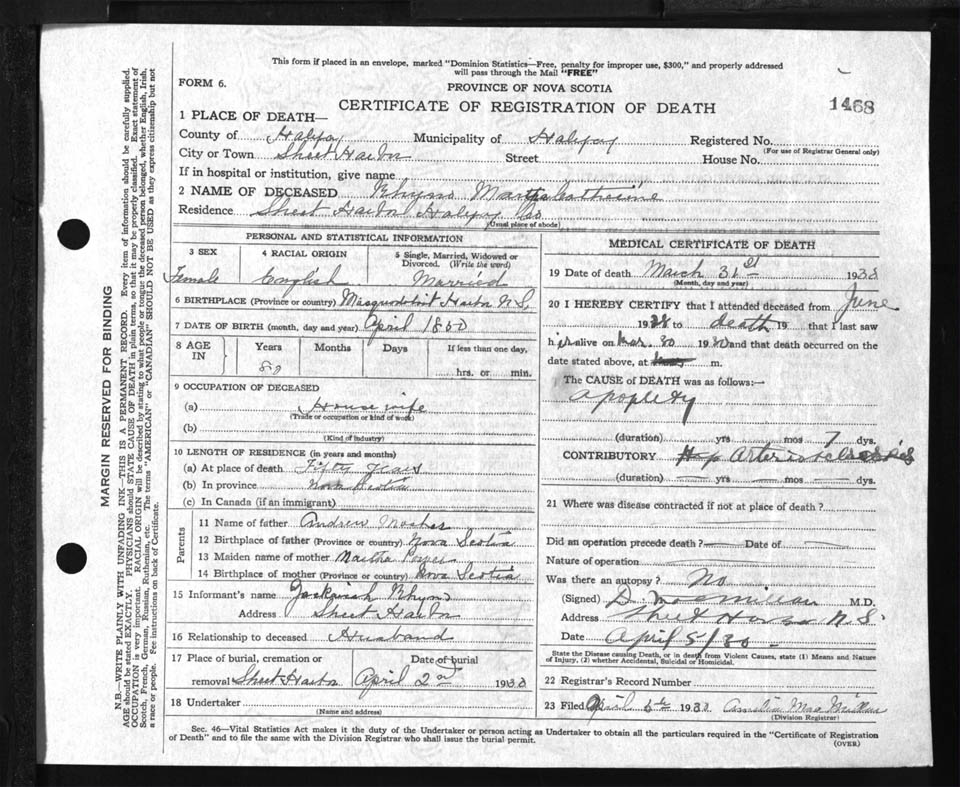 This form if placed in an envelope, marked "Dominion Statistics—Free, penalty for improper use, $300," and properly addressed
will pass through the Mail "FREE"
FORM 6.
PROVINCE OF NOVA SCOTIA
CERTIFICATE OF REGISTRATION OF DEATH
1468
1 PLACE OF DEATH—
County of Halifax Municipality of Halifax Registered No.
(For use of Registrar General only)
City or Town Sheet Harbor Street House No.
If in hospital or institution, give name
2 NAME OF DECEASED Rhyno Martha Catherine
Residence Sheet Harbor Halifax Co
(Usual place of abode)
PERSONAL AND STATISTICAL INFORMATION
3 SEX 4 RACIAL ORIGIN 5 Single, Married, Widowed or Divorced. (Write the word)
Female English Married
6 BIRTHPLACE (Province or country) Musquodoboit Harbor N.S.
7 DATE OF BIRTH (month, day and year) April 1850
8 AGE IN Years Months Days If less than one day,
hrs. or min.
9 OCCUPATION OF DECEASED
(a) Housewife
(Trade or occupation or kind of work)
(b)
(Kind of Industry)
10 LENGTH OF RESIDENCE (in years and months)
(a) At place of death Fifty years
(b) In province Nova Scotia
(c) In Canada (if an immigrant)
Parents
11 Name of father Andrew Mosher
12 Birthplace of father (Province or country) Nova Scotia
13 Maiden name of mother Martha
14 Birthplace of mother (Province or country) Nova Scotia
15 Informant's name Rhyno
Address Sheet Harbor
16 Relationship to deceased Husband
17 Place of burial, cremation or removal Sheet Harbor
Date of burial
April 2nd 1933
18 Undertaker
(Name and address)
MEDICAL CERTIFICATE OF DEATH
19 Date of death March 31st 1933
(Month, day and year)
20 I HEREBY CERTIFY that I attended deceased from June
19 to death 19 that I last saw
her alive on Mar. 30 19 and that death occurred on the
date stated above, at m.
The CAUSE of DEATH was as follows:—
Apoplexy
(duration) yrs mos 7 dys.
CONTRIBUTORY Arteriosclerosis
(duration) yrs mos dys.
21 Where was disease contracted if not at place of death?
Did an operation precede death? Date of
Nature of operation
Was there an autopsy? No
(Signed) D. MacMillan M.D.
Address Sheet Harbor N.S.
Date April 5/
State the Disease causing Death, or in death from Violent Causes, state (1) Means and Nature of Injury, (2) whether Accidental, Suicidal or Homicidal.
22 Registrar's Record Number
23 Filed April 193
(Division Registrar)
Sec. 46—Vital Statistics Act makes it the duty of the Undertaker or person acting as Undertaker to obtain all the particulars required in the "Certificate of Registration
of Death" and to file the same with the Division Registrar who shall issue the burial permit.
(OVER)
MARGIN RESERVED FOR BINDING
N.B.—WRITE PLAINLY WITH UNFADING INK—THIS IS A PERMANENT RECORD. Every item of information should be carefully supplied.
AGE should be stated EXACTLY. PHYSICIANS should STATE CAUSE OF DEATH in plain terms, so that it may be properly classified. Exact statement of
OCCUPATION is very important. RACIAL ORIGIN will be described by stating to what people or tongue the deceased person belonged, whether English, Irish,
Scotch, French, German, Russian, Ruthenian, etc. The terms "AMERICAN" or "CANADIAN" SHOULD NOT BE USED as they express citizenship but not
a race or people. See instructions on back of Certificate.